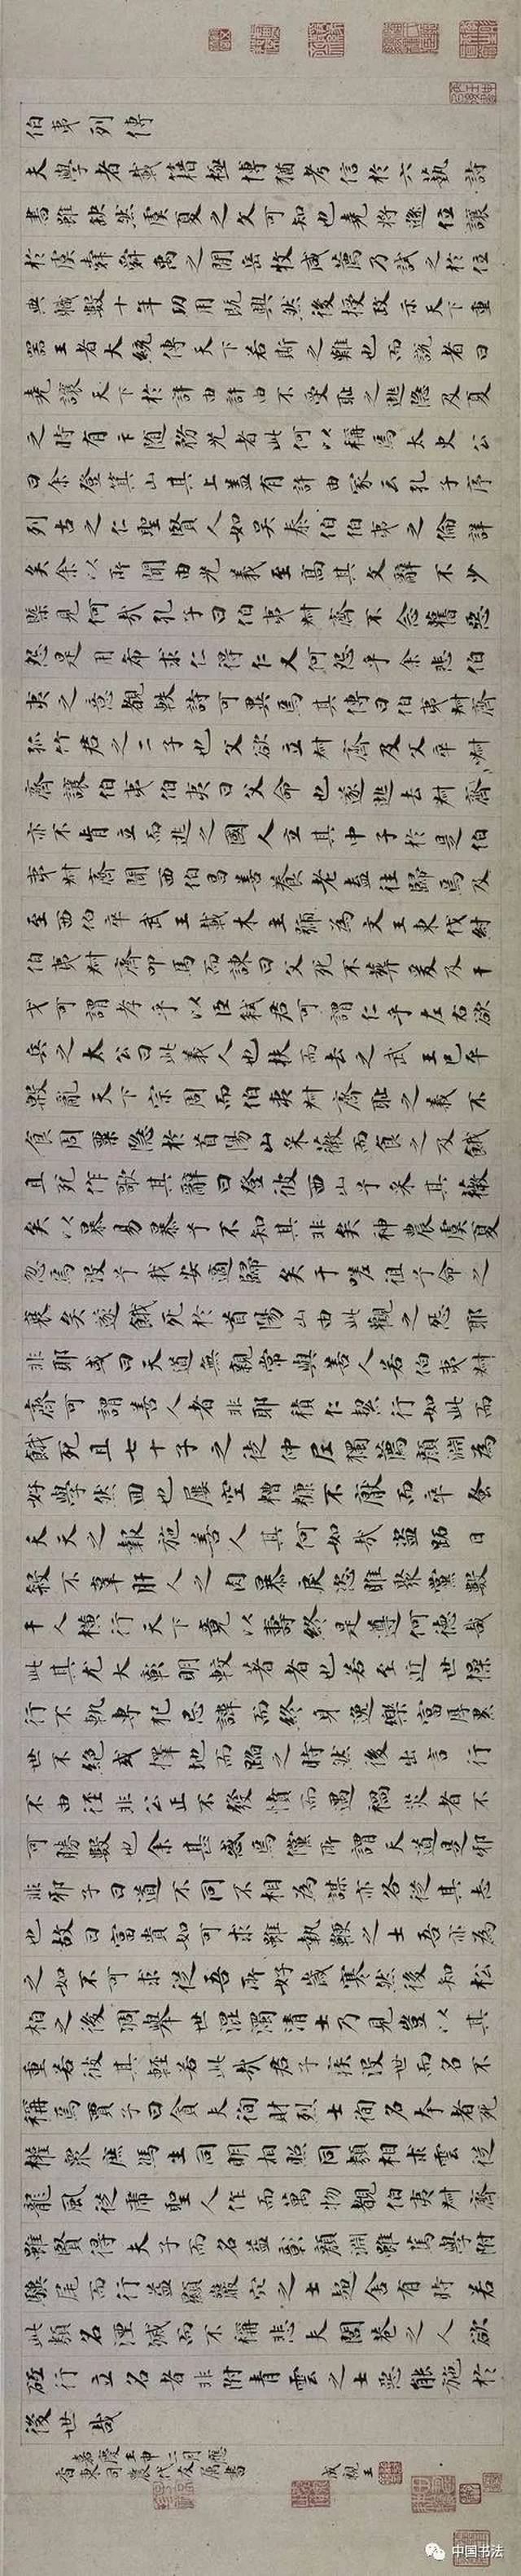 伯夷列傳
夫學者載籍極博猶考信於六藝詩
書雖缺然虞夏之文可知也堯將遜位讓
於虞舜舜禹之間岳牧咸薦乃試之於位
典職數十年功用既興然後授政示天下重
器王者大統傳天下若斯之難也而說者曰
堯讓天下於許由許由不受恥之逃隱及夏
之時有卞隨務光者此何以稱焉太史公
曰余登箕山其上蓋有許由冢云孔子序
列古之仁聖賢人如吳泰伯伯夷之倫詳
矣余以所聞由光義至高其文辭不少
槩見何哉孔子曰伯夷叔齊不念舊惡
怨是用希求仁得仁又何怨乎余悲伯
夷之意覩軼詩可異焉其傳曰伯夷叔齊
孤竹君之二子也父欲立叔齊及父卒叔
齊讓伯夷伯夷曰父命也遂逃去叔齊
亦不肯立而逃之國人立其中子於是伯
夷叔齊聞西伯昌善養老盍往歸焉及
至西伯卒武王載木主號為文王東伐紂
伯夷叔齊叩馬而諫曰父死不葬爰及干
戈可謂孝乎以臣弒君可謂仁乎左右欲
兵之太公曰此義人也扶而去之武王已平
殷亂天下宗周而伯夷叔齊恥之義不
食周粟隱於首陽山采薇而食之及餓
且死作歌其辭曰登彼西山兮采其薇
矣以暴易暴兮不知其非矣神農虞夏
忽焉沒兮我安適歸矣于嗟徂兮命之
衰矣遂餓死於首陽山由此觀之怨耶
非耶或曰天道無親常與善人若伯夷叔
齊可謂善人者非耶積仁絜行如此而
餓死且七十子之徒仲尼獨薦顏淵為
好學然回也屢空糟糠不厭而卒蚤
夭天之報施善人其何如哉盜跖日
殺不辜肝人之肉暴戾恣睢聚黨數
千人橫行天下竟以壽終是遵何德哉
此其尤大彰明較著者也若至近世操
行不軌專犯忌諱而終身逸樂富厚累
世不絕或擇地而蹈之時然後出言行
不由徑非公正不發憤而遇禍災者不
可勝數也余甚惑焉儻所謂天道是邪
非邪子曰道不同不相為謀亦各從其志
也故曰富貴如可求雖執鞭之士吾亦為
之如不可求從吾所好歲寒然後知松
柏之後凋舉世混濁清士乃見豈以其
重若彼其輕若此哉君子疾沒世而名不
稱焉賈子曰貪夫徇財烈士徇名夸者死
權衆庶馮生同明相照同類相求雲從
龍風從虎聖人作而萬物覩伯夷叔齊
雖賢得夫子而名益彰顏淵雖篤學附
驥尾而行益顯巖穴之士趨舍有時若
此類名湮滅而不稱悲夫閭巷之人欲
砥行立名者非附青雲之士惡能施於
後世哉
嘉慶壬申二月應
香東司農代友屬書
成親王
中国书法